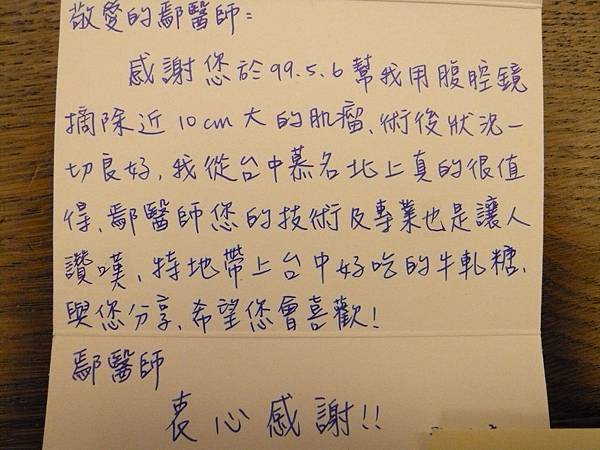 敬愛的鄢醫師:
感謝您於99.5.6幫我用腹腔鏡
摘除近10cm大的肌瘤、術後狀況一
切良好,我從台中慕名北上真的很值
得、鄢醫師您的技術及專業也是讓人
讚嘆,特地帶上台中好吃的牛軋糖、
與您分享,希望您會喜歡!
鄢醫師
衷心感謝!!